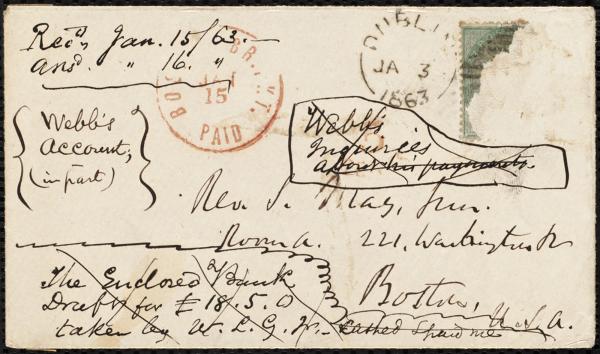 Recd, Jan. 15/63.
Ansd. " 16. "
BOS BR. PKT.
JAN
15
PAID
DUBLIN
JA 3
1863
Webb's
Account,
(in part)
Webb's
Inquiries
about his payments
Rev. S. May, Jun.
Room A. 221, Washington St
Boston,
U.S.A.
The Enclosed Bank
Draft for £18.5.0
taken by W. L. G. Jr.
Cashed & paid me